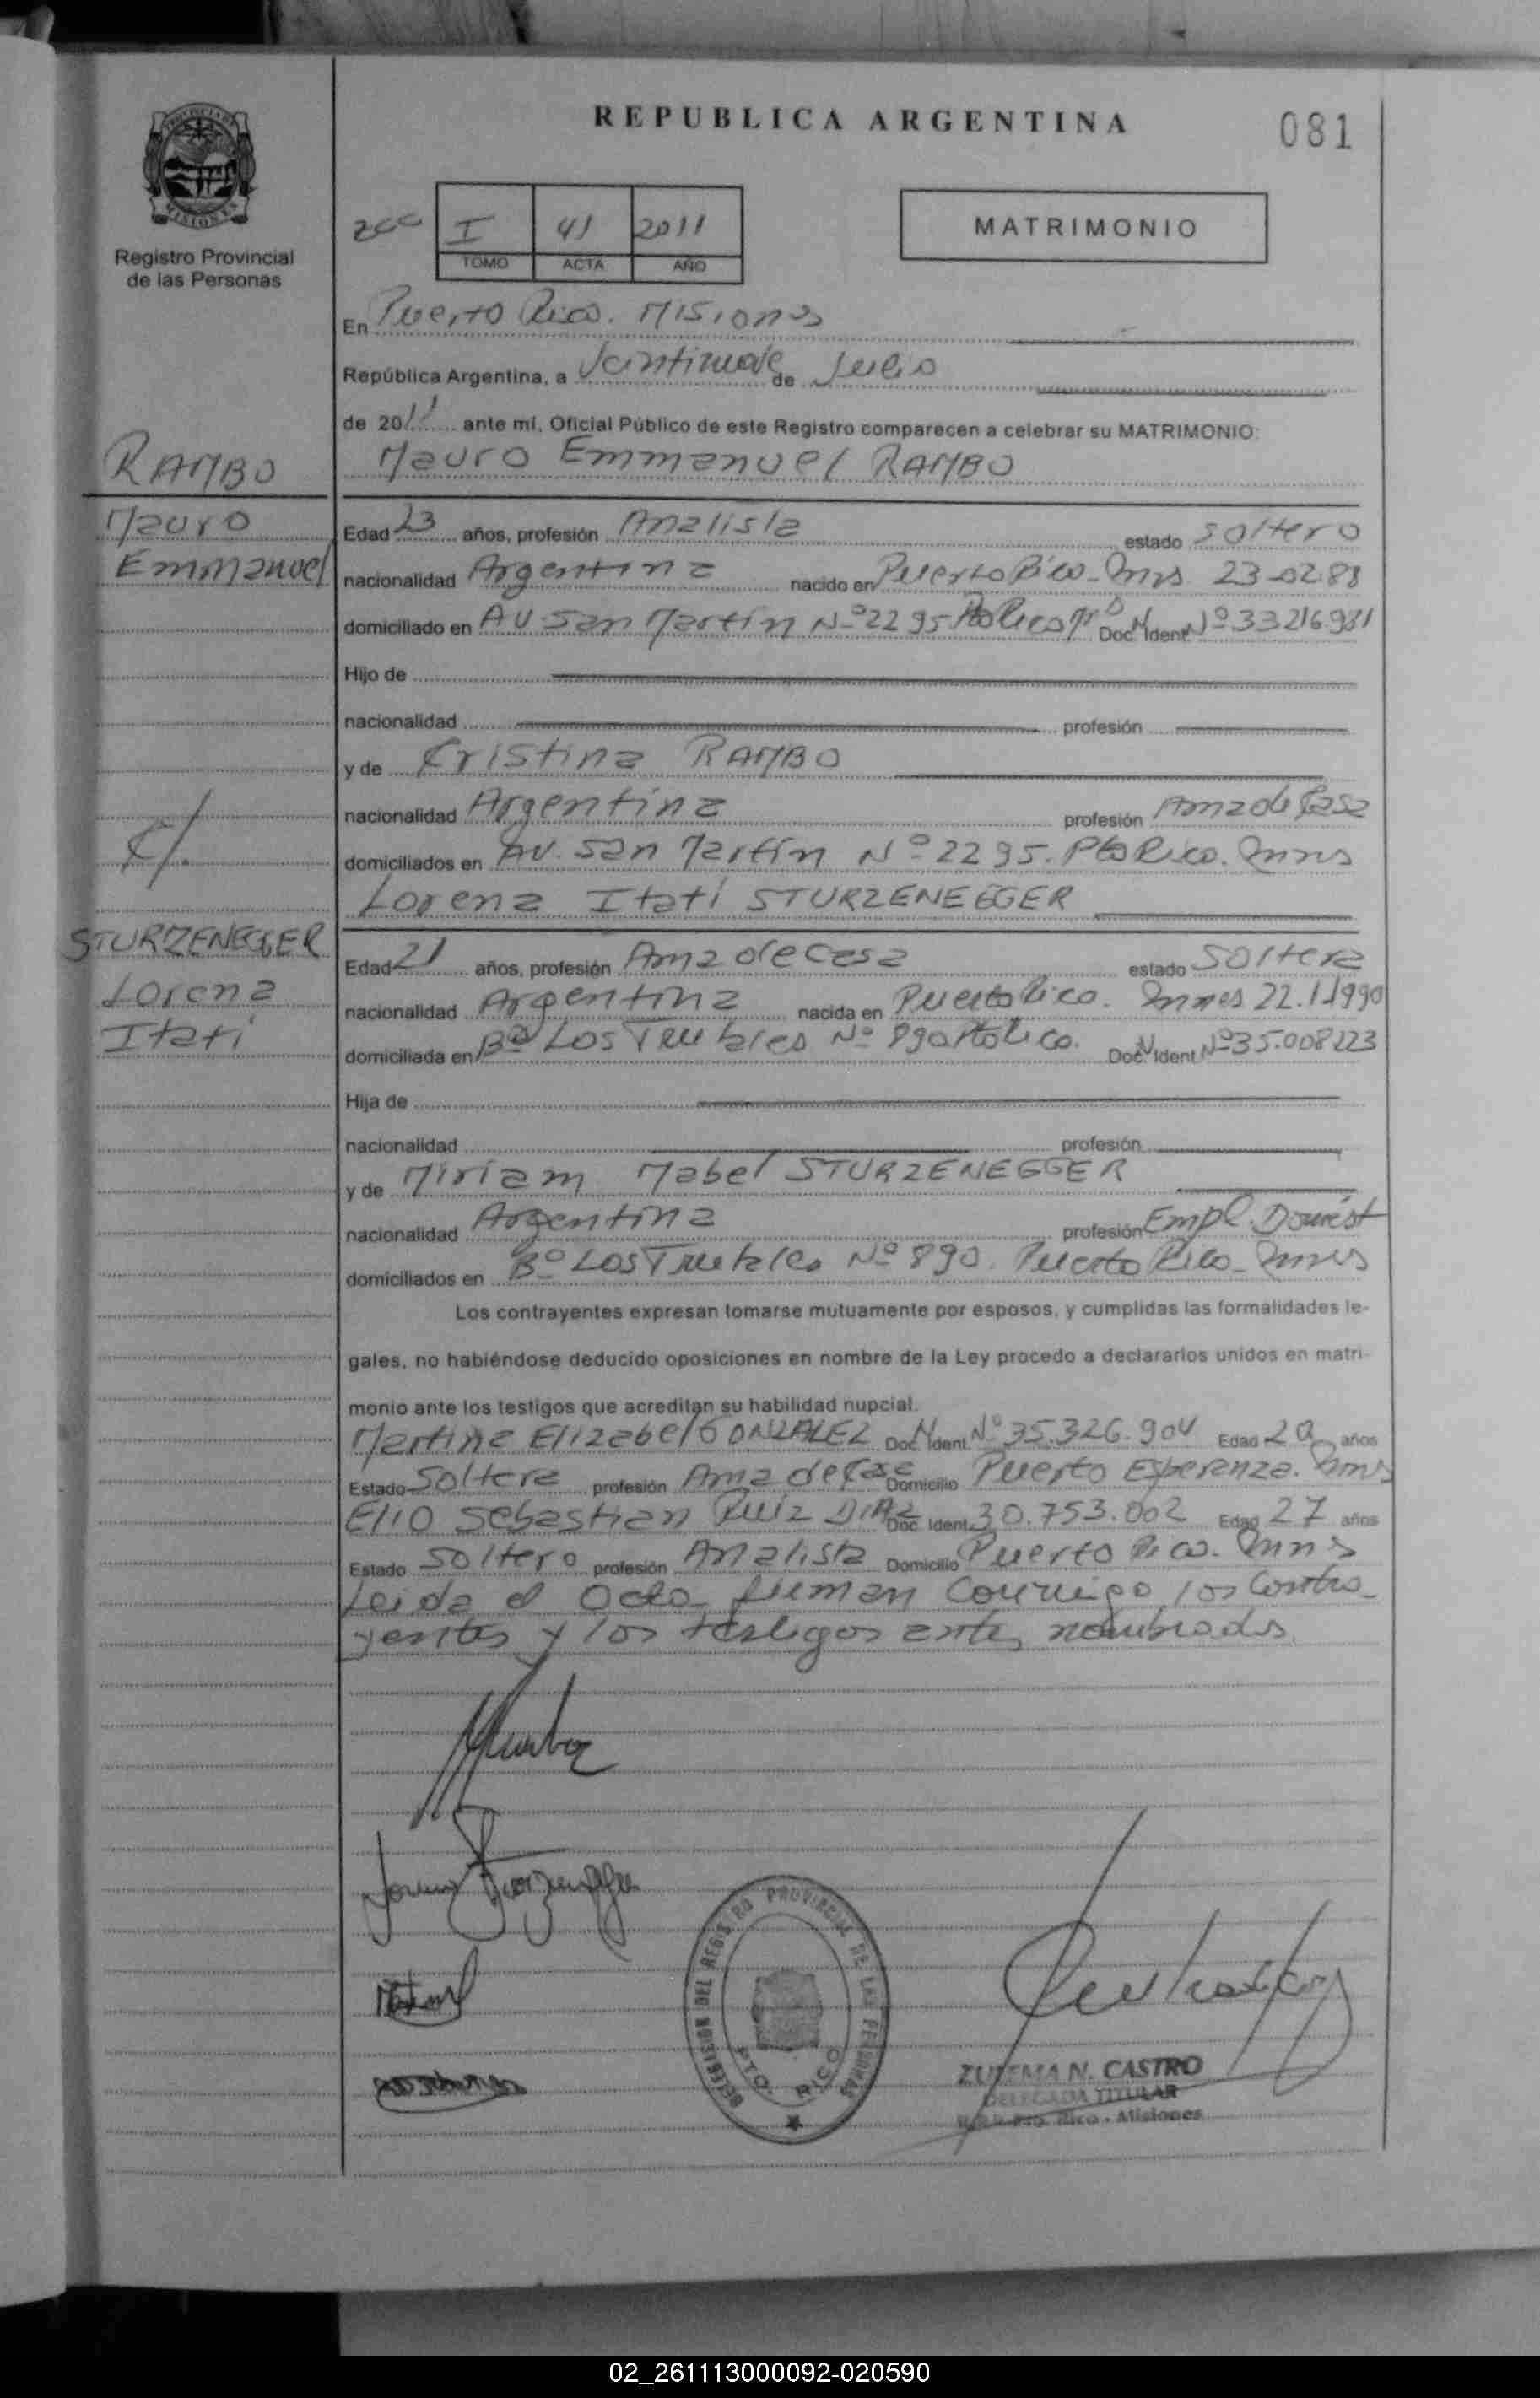 REPUBLICA ARGENTINA
081
PROVINCIA DE MISIONES
Registro Provincial
de las Personas
I 41 2011
TOMO ACTA AÑO
MATRIMONIO
En Puerto Rico. Misiones
República Argentina, a Veintinueve de Julio
de 2011 ante mí, Oficial Público de este Registro comparecen a celebrar su MATRIMONIO:
RAMBO
Mauro Emmanuel RAMBO
Mauro
Emmanuel
Edad 23 años, profesión Analista estado soltero
nacionalidad Argentina nacido en Puerto Rico - Mnes 23-02-88
domiciliado en AV. San Martín Nº 2295 Pto Rico Doc. Ident. Nº 33.216.931
Hijo de
nacionalidad profesión
y de Cristina RAMBO
nacionalidad Argentina profesión Ama de Casa
domiciliados en AV. San Martín Nº 2295. Pto Rico. Mnes
C/.
Lorena Itatí STURZENEGGER
STURZENEGGER
Lorena
Itatí
Edad 21 años, profesión Ama de Casa estado Soltera
nacionalidad Argentina nacida en Puerto Rico. Mnes 22.1.1990
domiciliada en Bº Los Nº 890 Pto Rico. Doc. Ident. Nº 35.008.223
Hija de
nacionalidad profesión
y de Miriam Mabel STURZENEGGER
nacionalidad Argentina profesión Empl. Domést
domiciliados en Bº Los Nº 890. Puerto Rico - Mnes
Los contrayentes expresan tomarse mutuamente por esposos, y cumplidas las formalidades le-
gales, no habiéndose deducido oposiciones en nombre de la Ley procedo a declararlos unidos en matri-
monio ante los testigos que acreditan su habilidad nupcial.
Martina Elizabet GONZALEZ Doc. Ident. Nº 35.326.904 Edad 20 años
Estado Soltera profesión Ama de Casa Domicilio Puerto Esperanza. Mnes
Elio Sebastian Ruiz DIAZ Doc. Ident. 30.753.002 Edad 27 años
Estado soltero profesión Analista Domicilio Puerto Rico. Mnes
Leida el Acta firman conmigo los contra-
yentes y los testigos antes nombrados.
DELEGACION DEL REGISTRO PROVINCIAL DE LAS PERSONAS
PTO. RICO
ZULEMA N. CASTRO
DELEGADA TITULAR
R.P.P. Pto. Rico - Misiones
02_261113000092-020590